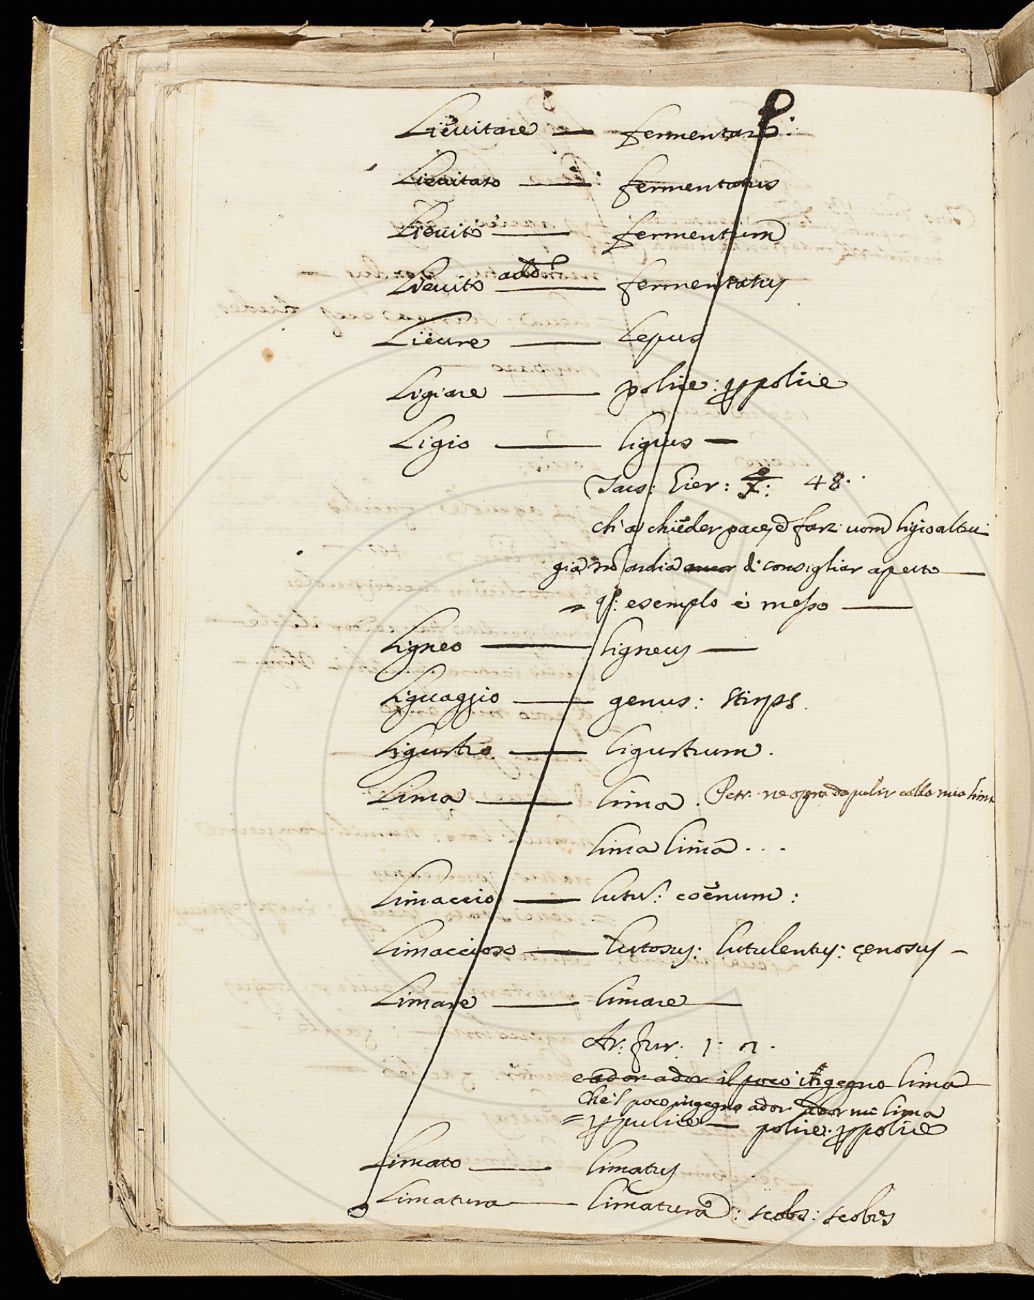 Lievitare — fermentare:
Lievitato — fermentatus
Lievito — fermentum
Lievito add: — fermentatus
Lievre — Lepus
Ligiare — polire: perpolire
Ligio — ligius —
Tass: Gier: 48.
chi a chieder pace, e farz' uom ligio altrui
già non ardia di consigliar aperto —
= q: esemplo è messo —
Ligneo — ligneus —
Lignaggio — genus: stirps.
Ligustro — ligustrum.
Lima — lima. Petr. ne opra da pulir colla mia lima
lima lima . . .
Limaccio — lutu: coenum:
Limaccioso — lutosus: lutulentus: cęnosus —
Limare — limare —
Ar: fur: 1: 2.
e ador ador il poco ingegno lima
che'l poco ingegno ador ador mi lima
= perpulire — polire: perpolire
Limato — limatus
Limatura — limatura: scobs: scobis